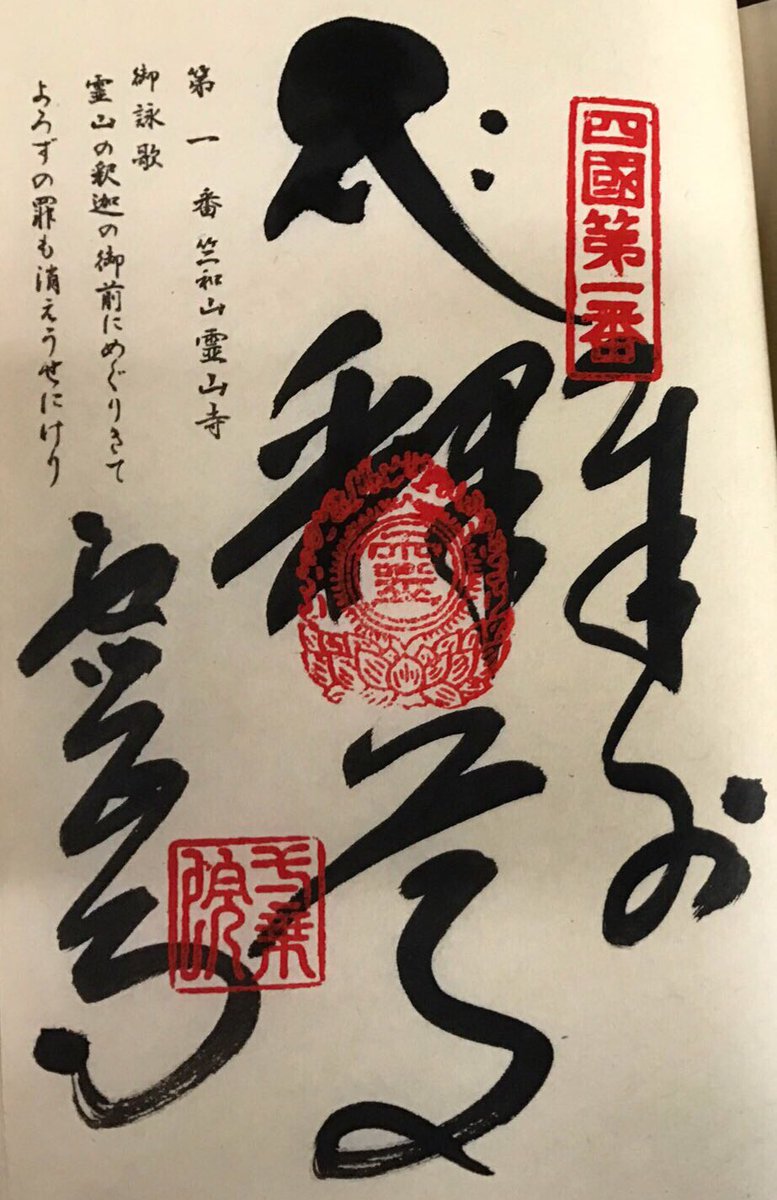 四國第一番
奉納
霊山寺
第一番 竺和山霊山寺
御詠歌
霊山の釈迦の御前にめぐりきて
よろずの罪も消えうせにけり